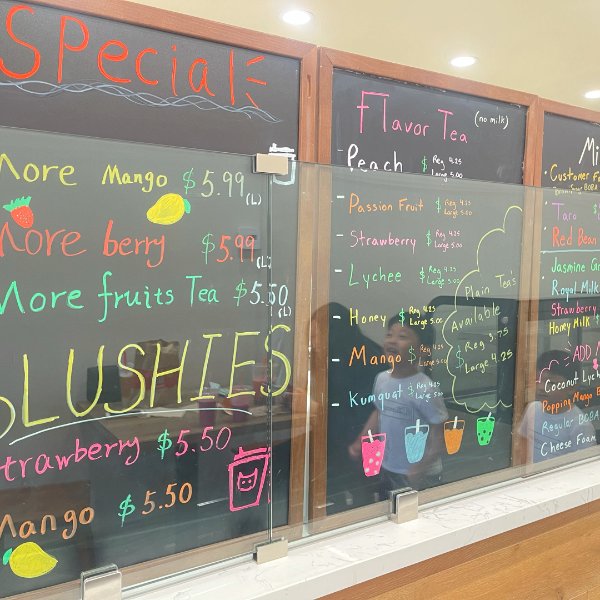 Special
More Mango $5.99 (L)
More berry $5.99 (L)
More fruits Tea $5.50 (L)
SLUSHIES
Strawberry $5.50
Mango $5.50
Flavor Tea (no milk)
- Peach $ Reg 4.25
Large 5.00
- Passion Fruit $ Reg 4.25
Large 5.00
- Strawberry $ Reg 4.25
Large 5.00
- Lychee $ Reg 4.25
Large 5.00
- Honey $ Reg 4.25
Large 5.00
- Mango $ Reg 4.25
Large 5.00
- Kumquat $ Reg 4.25
Large 5.00
Plain Tea's
Available
$ Reg 3.75
Large 4.25
Mi
Customer Fa
Taro
Red Bean
Jasmine Gr
Royal Milk
Strawberry
Honey Milk $
ADD
Coconut Lych
Popping Mango B
Regular BOBA
Cheese Foam